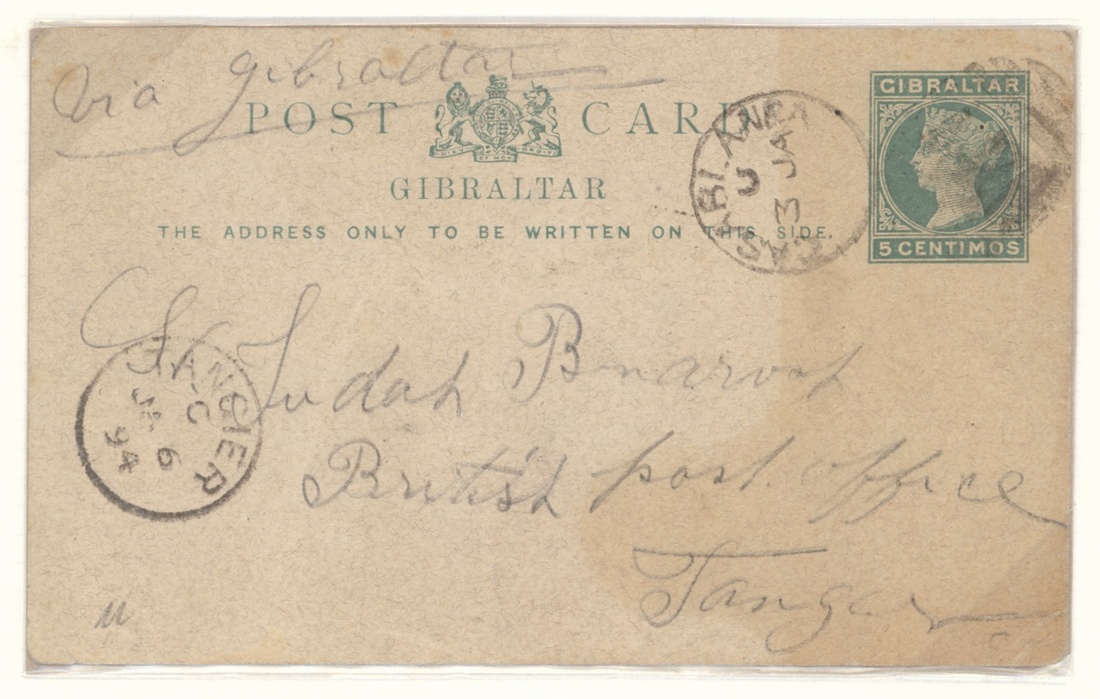 via gibraltar
POST CARD
DIEU ET MON DROIT
GIBRALTAR
THE ADDRESS ONLY TO BE WRITTEN ON THIS SIDE.
GIBRALTAR
5 CENTIMOS
CASABLANCA
C
JA 3
TANGIER
C
JA 6
94
Judah
British post office
Tanger